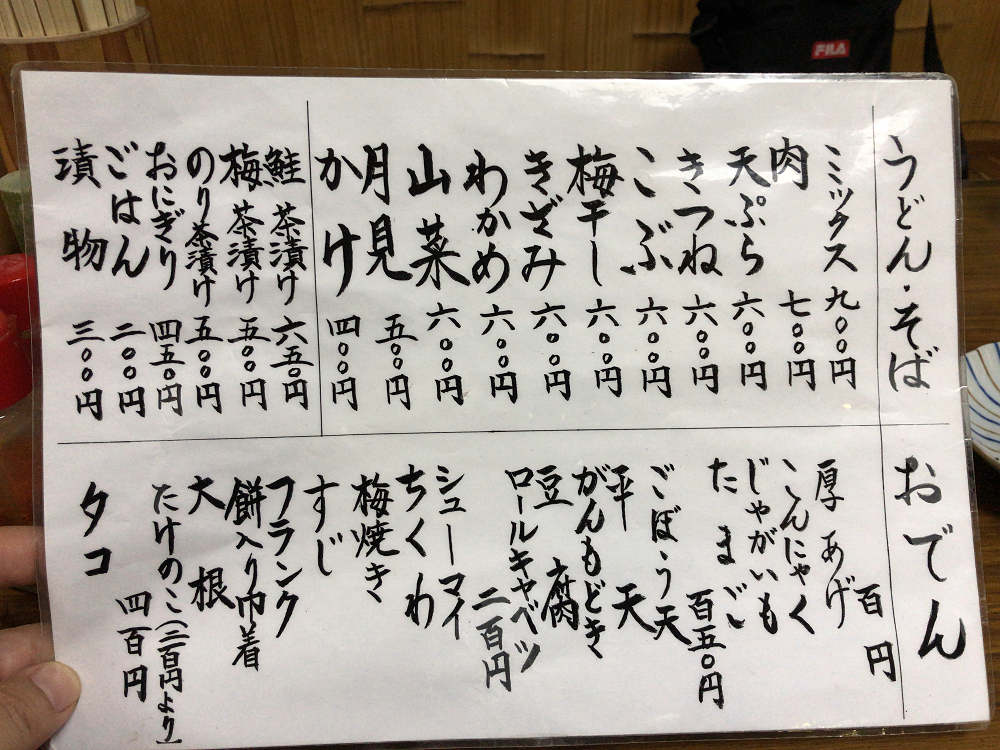 うどん・そば
ミックス 九〇〇円
肉 七〇〇円
天ぷら 六〇〇円
きつね 六〇〇円
こぶ 六〇〇円
梅干し 六〇〇円
きざみ 六〇〇円
わかめ 六〇〇円
山菜 六〇〇円
月見 五〇〇円
かけ 四〇〇円
鮭茶漬け 六五〇円
梅茶漬け 五五〇円
のり茶漬け 五〇〇円
おにぎり 四五〇円
ごはん 二〇〇円
漬物 三〇〇円
おでん
厚あげ 百円
こんにゃく
じゃがいも
たまご 百五〇円
ごぼう天
平天
がんもどき
豆腐
ロールキャベツ 二百円
シューマイ
ちくわ
梅焼き
すじ
フランク
餅入り巾着
大根
たけのこ(二百円より)
タコ 四百円
FILA